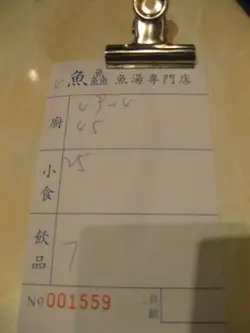 魚鱻 魚湯專門店
廚
45
小食
25
飲品
7
No 001559